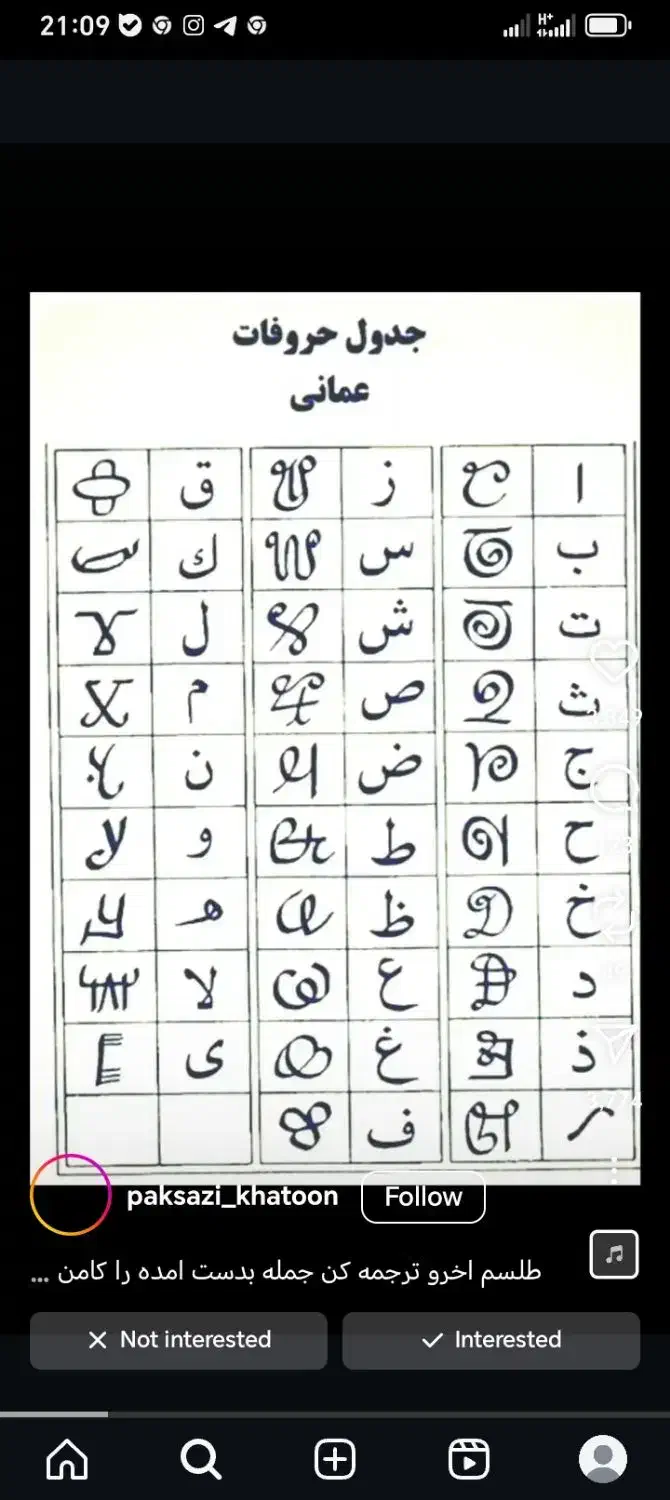 21:09
H+
جدول حروفات
عمانی
ا ز ق
ب س ك
ت ش ل
ث ص م
ج ض ن
ح ط و
خ ظ ه
د ع لا
ذ غ ى
ر ف
3,774
paksazi_khatoon
Follow
طلسم اخرو ترجمه کن جمله بدست امده را کامن ...
Not interested
Interested